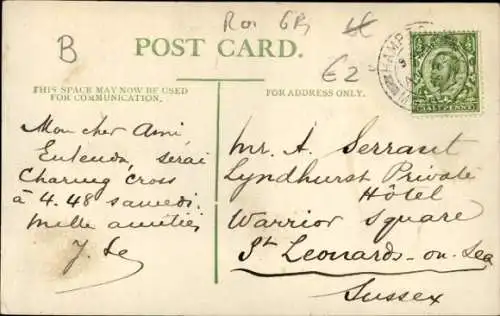 B
€2
POST CARD.
THIS SPACE MAY NOW BE USED
FOR COMMUNICATION.
FOR ADDRESS ONLY.
HALFPENNY
Mon cher Ami,
Entendu, serai
Charing Cross
à 4.48 samedi.
Mille amitiés
Mr. A. Serraut
Lyndhurst Private
Hôtel
Warrior Square
St Leonards-on-Sea
Sussex